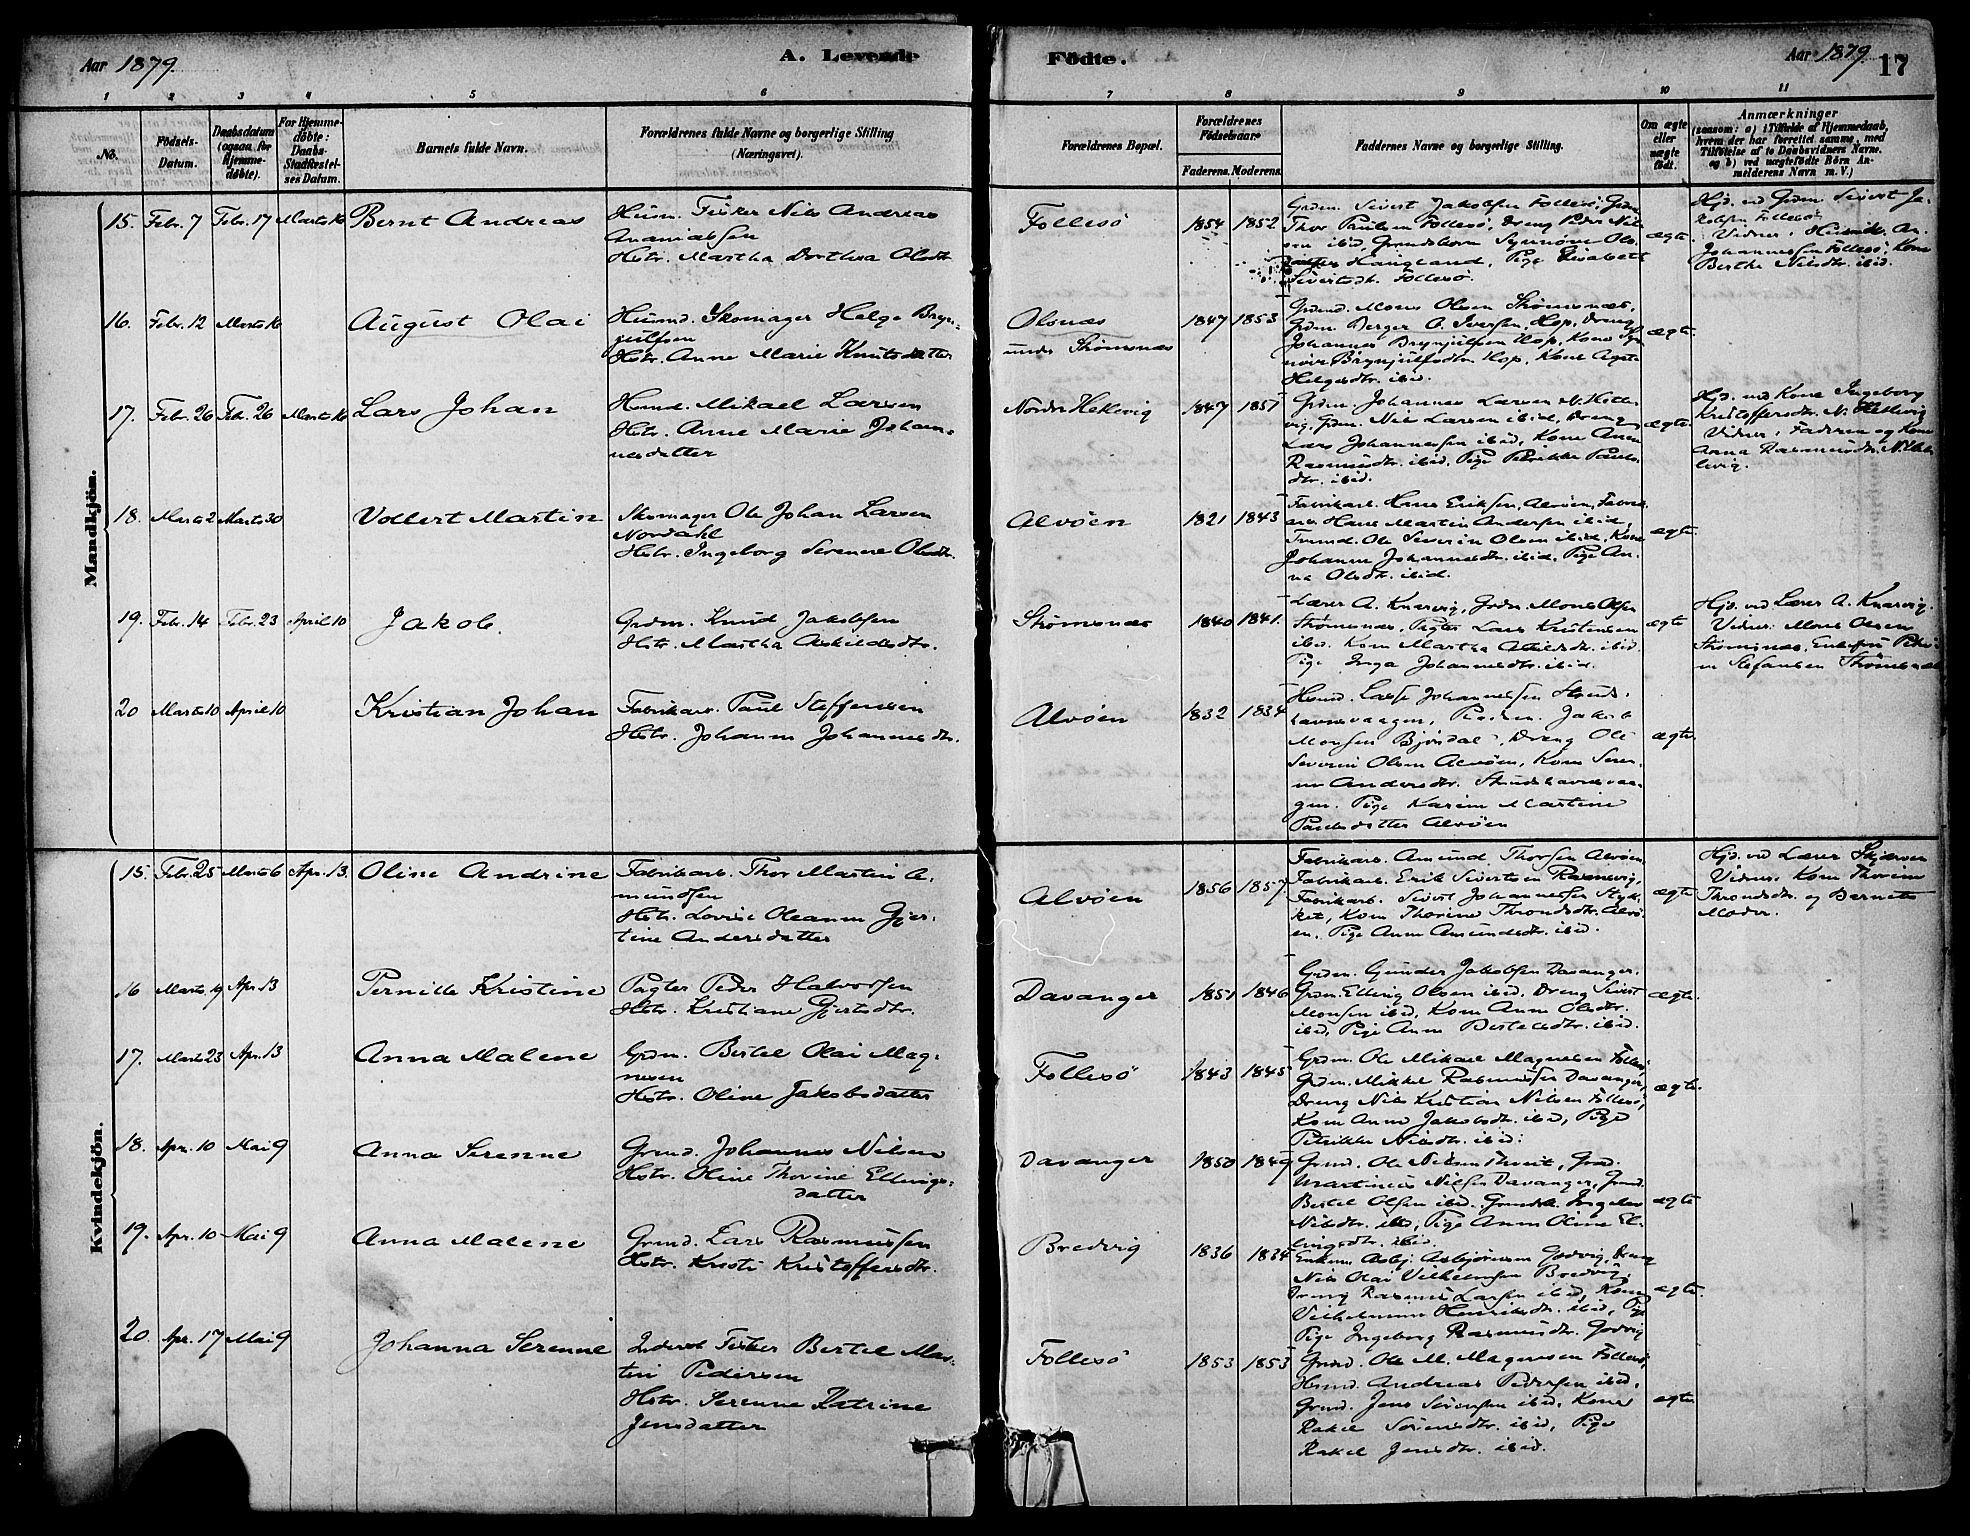 Aar 1879.
A. Levende
Födte.
Aar 1879.
17
1 2 3 4 5 6 7 8 9 10 11
No.
Födsels-
Datum.
Daabsdatum
(ogsaa for
Hjemme-
döbte).
For Hjemme-
döbte:
Daabs-
Stadfæstel-
ses Datum.
Barnets fulde Navn.
Forældrenes fulde Navne og borgerlige Stilling
(Næringsvei).
Forældrenes Bopæl.
Forældrenes
Födselsaar:
Faderens. Moderens.
Faddernes Navne og borgerlige Stilling.
Om ægte
eller
uægte
födt.
Anmærkninger
(saasom: a) i Tilfælde af Hjemmedaab,
hvem der har forrettet samme, med
Tilföielse af to Daabsvidners Navne.
og b) ved uægtefödte Börn An-
melderens Navn m. V.)
Mandkjön.
15. Febr. 7 Febr. 17 Marts 16 Bernt Andreas
Husm. Fisker Nils Andreas
Ananiassen
Hstr. Martha Dorthea Olsdtr.
Follesö 1854 1852
Grdm. Sivert Jakobsen Follesö, Grdm
Thor Paulsen Follesö, Dreng Peder Nil-
sen ibid, Grundskone Synnöve Ols-
datter Haugland, Pige Elisabeth
Sivertsdtr. Follesö.
ægte
Hjd. ved Grdm Sivert Ja-
kobsen Follesö
Vidner: An.
Johannessen Follesö, Kone
Berthe Nilsdtr. ibid.
16. Febr. 12 Marts 16 August Olai
Husmd. Skomager Helge Bryn-
julfsen
Hstr. Anne Marie Knutsdatter
Olsnæs
under Strömsnæs 1847 1853
Grdmd. Mons Olsen Strömsnæs,
Grdm Berger O. Iversen, Hop, Dreng
Johannes Brynjulfsen Hop, Kone Syn-
növe Brynjulfsdtr Hop, Kone Agate
Helgesdtr. ibid.
ægte
17. Febr. 26 Feb. 26 Marts 16 Lars Johan
Husmd. Mikael Larsen
Hstr. Anne Marie Johan-
nesdatter
Nordre Hetlevig 1847 1851
Grdm. Johannes Larsen N. Hetle-
vig, Grdm. Nils Larsen ibid, Dreng
Lars Johannessen ibid, Kone Anna
Rasmusdtr. ibid, Pige Petrikke Pauls-
dtr. ibid.
ægte.
Hjd. ved Kone Ingeborg
Kristoffersdtr. N. Hetlevig
Vidner: Faderen og Kone
Anna Rasmusdtr. N. Hetle-
vig.
18. Marts 2 Marts 30 Volbert Martin
Skomager Ole Johan Larsen
Nordahl
Hstr. Ingeborg Serene Olsdtr.
Alvöen 1821 1843
Fabrikarb. Hans Eriksen, Alvöen, Fabrik-
arb. Hans Martin Andersen ibid,
Ole Severin Olsen ibid, Kone
Johanne Johannesdtr. ibid, Pige An-
na Olsdtr. ibid.
ægte.
19. Febr. 14 Febr. 23 April 10 Jakob.
Grdm. Knud Jakobsen
Hstr. Martha Askildsdtr.
Strömsnæs 1840 1841.
Lærer A. Knarvig, Grdm. Mons Olsen
Strömsnæs, Pagter Lars Kristensen
ibid. Kone Martha dtr. ibid
Pige Inga Johannesdtr. ibid.
ægte
Hjd. ved Lærer A. Knarvig.
Vidner: Mons Olsen
Strömsnæs, Enkefru
Stefansen Strömsnæs
20 Marts 10 April 10 Kristian Johan
Fabrikarb. Paul Steffensen
Hstr. Johanne Johannesdtr.
Alvöen 1832 1834
Husmd. Lasse Johannessen Skuds-
havnsvaagen, Jakob
Monsen Bjöndal, Dreng Ole
Severin Olsen Alvöen, Kone Sere-
ne Andersdtr. Skudshavnsvaa-
gen. Pige Karen Martine
Paulsdatter Alvöen
ægte.
Kvindekjön.
15. Febr. 25 Marts 6 Apr. 13. Oline Andrine
Fabrikarb. Thor Martin A-
mundsen
Hstr. Lovise Oleanne Gjer-
tine Andersdatter
Alvöen 1856 1857.
Fabrikarb. Amund Thorsen Alvöen,
Fabrikarb. Erik Sivertsen
Fabrikarb. Sivert Johannessen Styk-
ket, Kone Thorine Throndsdtr. Alvö-
en, Pige Anne Amundsdtr. ibid.
ægte
Hjd. ved Lærer Skjerven
Vidner: Kone Thorine
Throndsdtr. og Barnets
Moder.
16 Marts 19 Apr. 13 Pernille Kristine
Pagter Peder Halvorsen
Hstr. Kristiane Gjertsdtr.
Davanger 1851 1846
Grdm. Gunder Jakobsen Davanger.
Grdm. Elling Olsen ibid. Dreng Sivert
Monsen ibid, Kone Anne Olsdtr.
ibid, Pige Anne Bertelsdtr. ibid.
ægte.
17. Marts 23 Apr. 13 Anna Malene
Grdm. Bertel Olai Mag-
nesen
Hstr. Oline Jakobsdatter
Follesö 1843 1845
Grdm. Ole Mikael Magnesen Follesö,
Grdm. Mikkel Rasmussen Davanger,
Dreng Nils Kristian Nilsen Follesö,
Kone Anne Jakobsdtr. ibid, Pige
Petrikke Nilsdtr. ibid:
ægte.
18. Apr. 10 Mai 9 Anna Serenne
Grmd. Johannes Nilsen
Hstr. Oline Thorine Ellings-
datter
Davanger 1850 1849
Grmd. Ole Nilsen Thveit, Grmd.
Martinius Nilsen Davanger, Grmd.
Bertel Olsen ibid.
Nilsdtr. ibid, Pige Anne Oline El-
lingsdtr. ibid.
ægte
19. Apr. 10 Mai 9 Anna Malene
Grmd. Lars Rasmussen
Hstr. Kristi Kristoffersdtr.
Bredvig 1836 1834
Asbj. Asbjörnsen Godvig, Dreng
Nils Olai Vilhelmsen Bredvig,
Dreng Rasmus Larsen ibid, Kone
Vilhelmine Henriksdtr. ibid, Pige
Pige Ingeborg Rasmusdtr. Godvig
ægte.
20. Apr. 17 Mai 9 Johanna Serenne
Inderst Fisker Bertel Mar-
tin Pedersen
Hstr. Serenne Katrine
Jensdatter
Follesö 1853 1853
Grmd. Ole M. Magnesen Follesö,
Husmd. Andreas Pedersen ibid.
Grmd. Jens Sörensen ibid, Kone
Rakel Sörensdtr. ibid, Pige
Rakel Jensdtr. ibid.
ægte